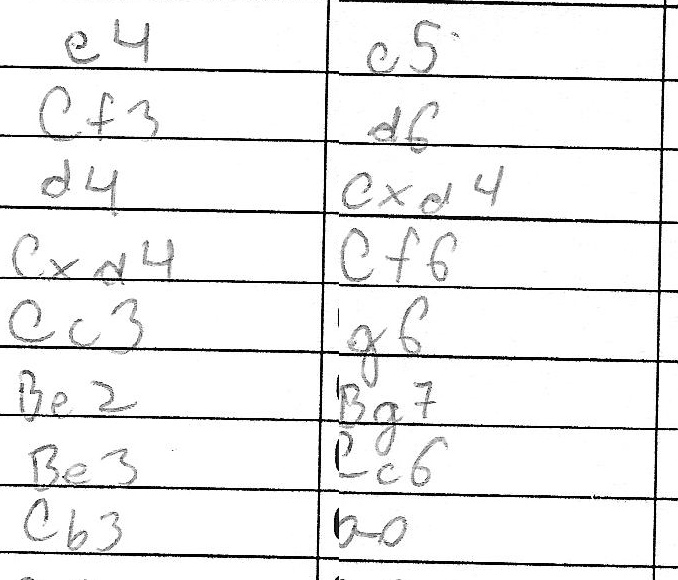 e4 c5
Cf3 d6
d4 cxd4
Cxd4 Cf6
Cc3 g6
Be2 Bg7
Be3 Cc6
Cb3 0-0